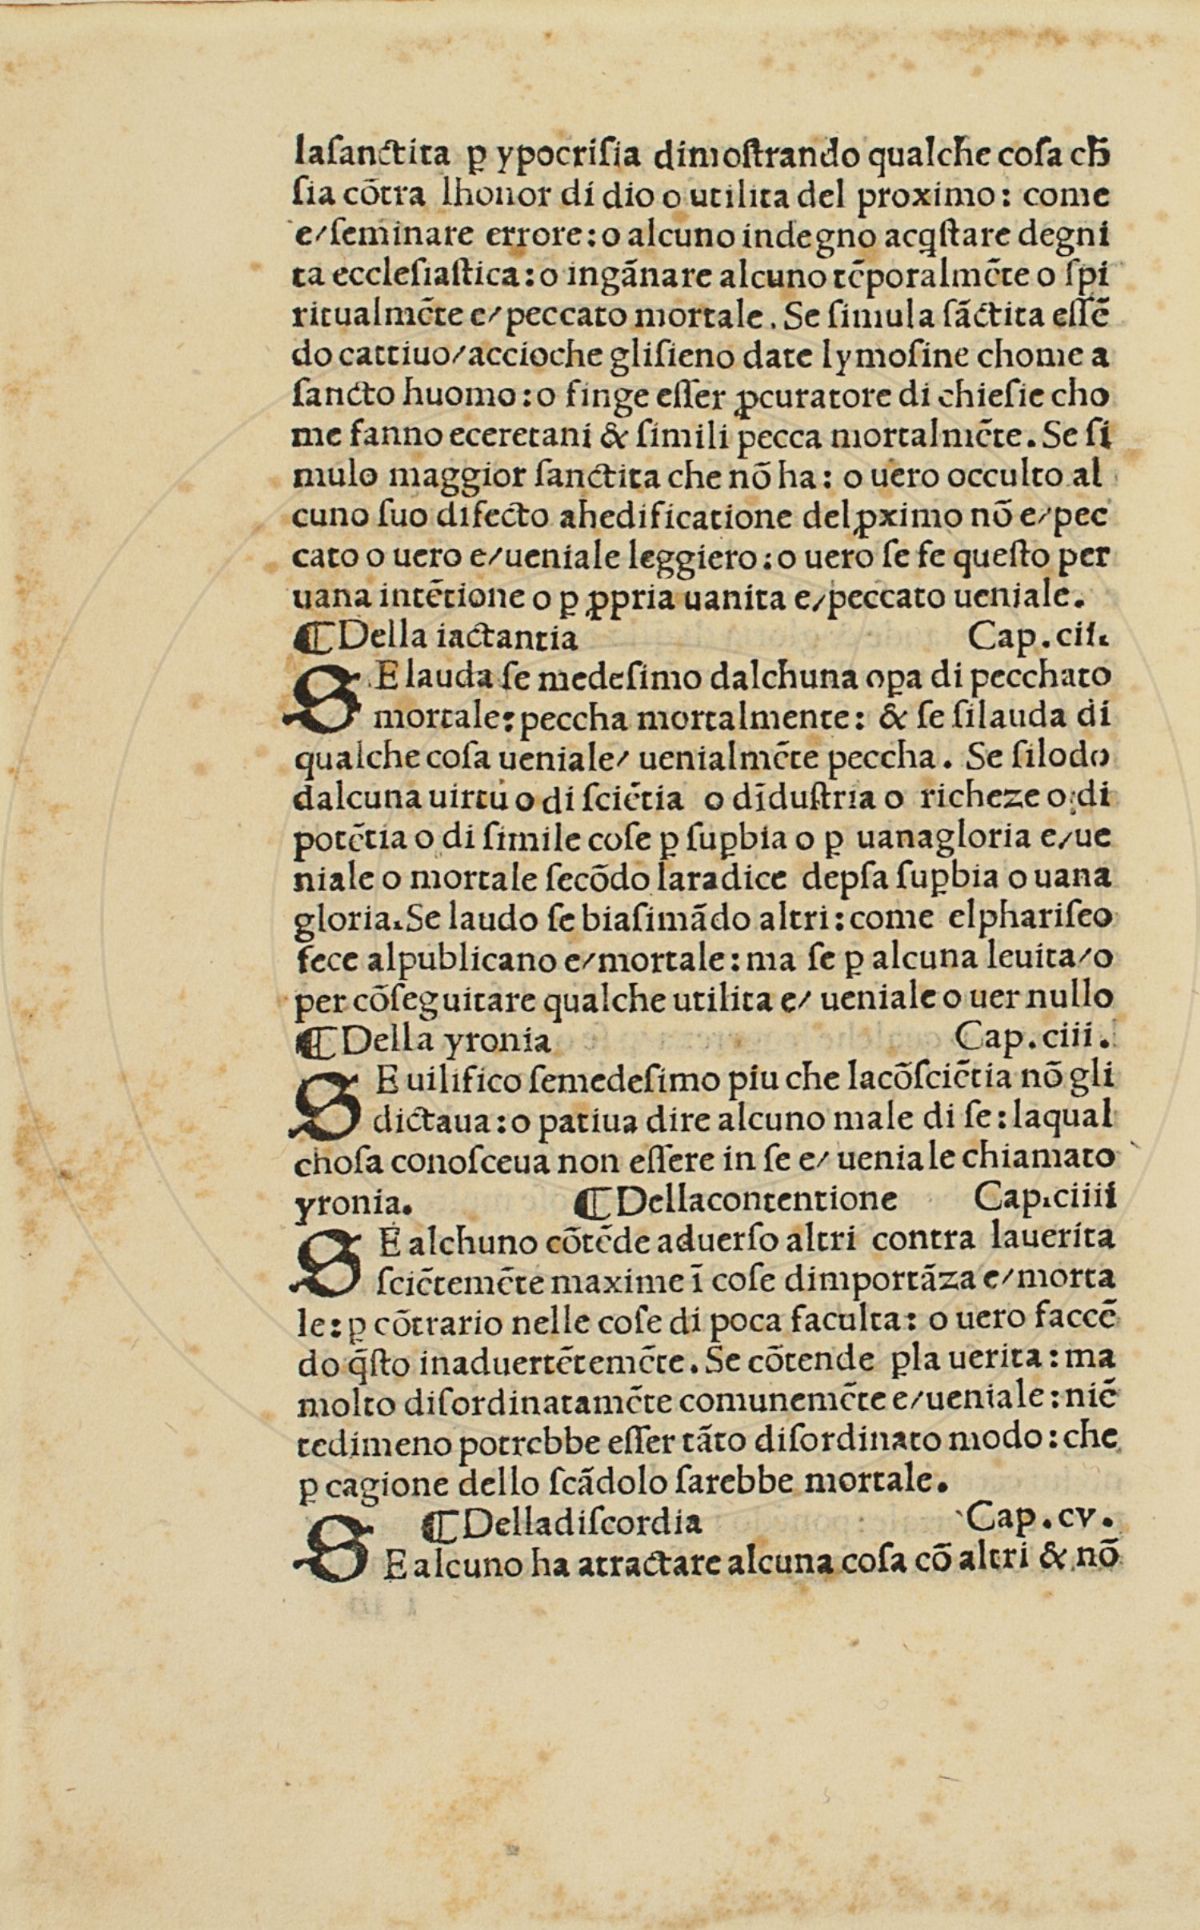 laſanctita ꝑ ypocriſia dimoſtrando qualche coſa cħ
ſia cõtra lhonor di dio o utilita del proximo: come
e/ſeminare errore: o alcuno indegno acqſtare degni
ta eccleſiaſtica: o ingãnare alcuno tẽporalmẽte o ſpi
ritualmẽte e/peccato mortale. Se ſimula ſãctita eſſẽ
do cattiuo/accioche gliſieno date lymoſine chome a
ſancto huomo: o finge eſſer ꝓcuratore di chieſie cho
me fanno eceretani & ſimili pecca mortalmẽte. Se ſi
mulo maggior ſanctita che nõ ha: o uero occulto al
cuno ſuo difecto ahedificatione del ꝓximo nõ e/pec
cato o uero e/ueniale leggiero: o uero ſe fe queſto per
uana intẽtione o ꝑ ꝓpria uanita e/peccato ueniale.
⸿Della iactantia Cap.cii.
SE lauda ſe medeſimo dalchuna oꝑa di pecchato
mortale: peccha mortalmente: & ſe ſilauda di
qualche coſa ueniale/ uenialmẽte peccha. Se ſilodo
dalcuna uirtu o di ſciẽtia o dĩduſtria o richeze o di
potẽtia o di ſimile coſe ꝑ ſuꝑbia o ꝑ uanagloria e/ue
niale o mortale ſecõdo laradice depſa ſuꝑbia o uana
gloria. Se laudo ſe biaſimãdo altri: come elphariſeo
fece alpublicano e/mortale: ma ſe ꝑ alcuna leuita/o
per cõſeguitare qualche utilita e/ ueniale o uer nullo
⸿Della yronia Cap.ciii.
SE uilifico ſemedeſimo piu che lacõſciẽtia nõ gli
dictaua: o patiua dire alcuno male di ſe: laqual
choſa conoſceua non eſſere in ſe e/ ueniale chiamato
yronia. ⸿Dellacontentione Cap.ciiii
SE alchuno cõtẽde aduerſo altri contra lauerita
ſciẽtemẽte maxime ĩ coſe dimportãza e/morta
le: ꝑ cõtrario nelle coſe di poca faculta: o uero faccẽ
do q̃ſto inaduertẽtemẽte. Se cõtende ꝑla uerita: ma
molto diſordinatamẽte comunemẽte e/ueniale: niẽ
tedimeno potrebbe eſſer tãto diſordinato modo: che
ꝑ cagione dello ſcãdolo ſarebbe mortale.
⸿Delladiſcordia Cap.cv.
SE alcuno ha atractare alcuna coſa cõ altri & nõ